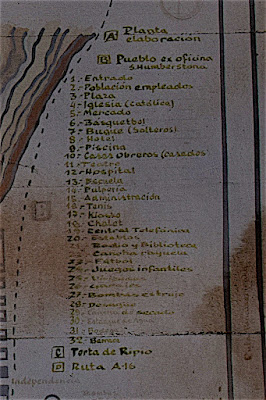 A Planta
elaboración
B Pueblo ex oficina
S. Humberstone
1.- Entrada
2.- Población empleados
3.- Plaza
4.- Iglesia (católica)
5.- Mercado
6.- Básquetbol
7.- Buque (Solteros)
8.- Hotel
9.- Piscina
10.- Casas Obreros (casados
11.- Teatro
12.- Hospital
13.- Escuela
14.- Pulpería
15.- Administración
16.- Tenis
17.- Kiosko
18.- Chalet
19.- Central Telefónica
20.- Establos
21.- Radio y Biblioteca
Cancha rayuela
Futbol
Juegos infantiles
27.- Bombas estrajo
28.- Desagüe
secado
31.- Bodega
32.- Bomba
C Torta de Ripio
D Ruta A-16
Independencia